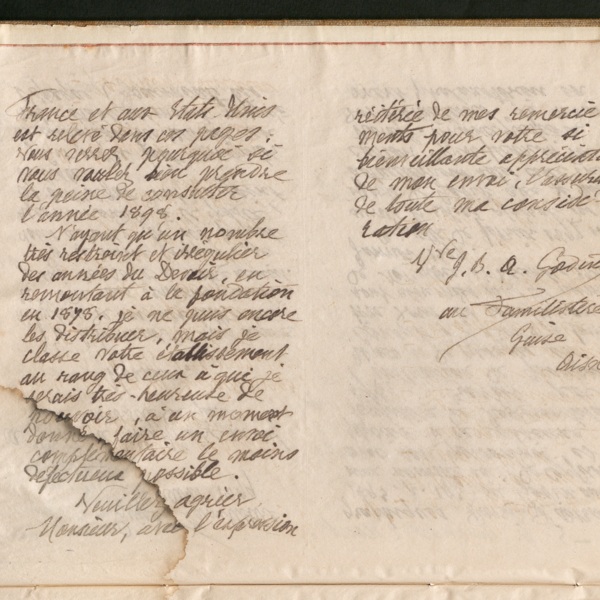 France et aux Etats-Unis
est relevé dans ces pages.
Vous verrez pourquoi si
vous voulez bien prendre
la peine de consulter
l'année 1898.
N'ayant qu'un nombre
très restreint et irrégulier
des années du Devoir, en
remontant à le fondation
en 1878. je ne puis encore
les distribuer, mais je
classe votre établissement
au rang de ceux à qui je
serais très-heureuse de
pouvoir, à un moment
donné, faire un envoi
complémentaire le moins
défectueux possible.
Veuillez agréer
Monsieur, avec l'expression
réitérée de mes remercie
ments pour votre si
bienveillante appréciati
de mon envoi, l'assura
de toute ma considé
ration
Vve J. B. A. Godin
au Familistère
Guise
Aisn